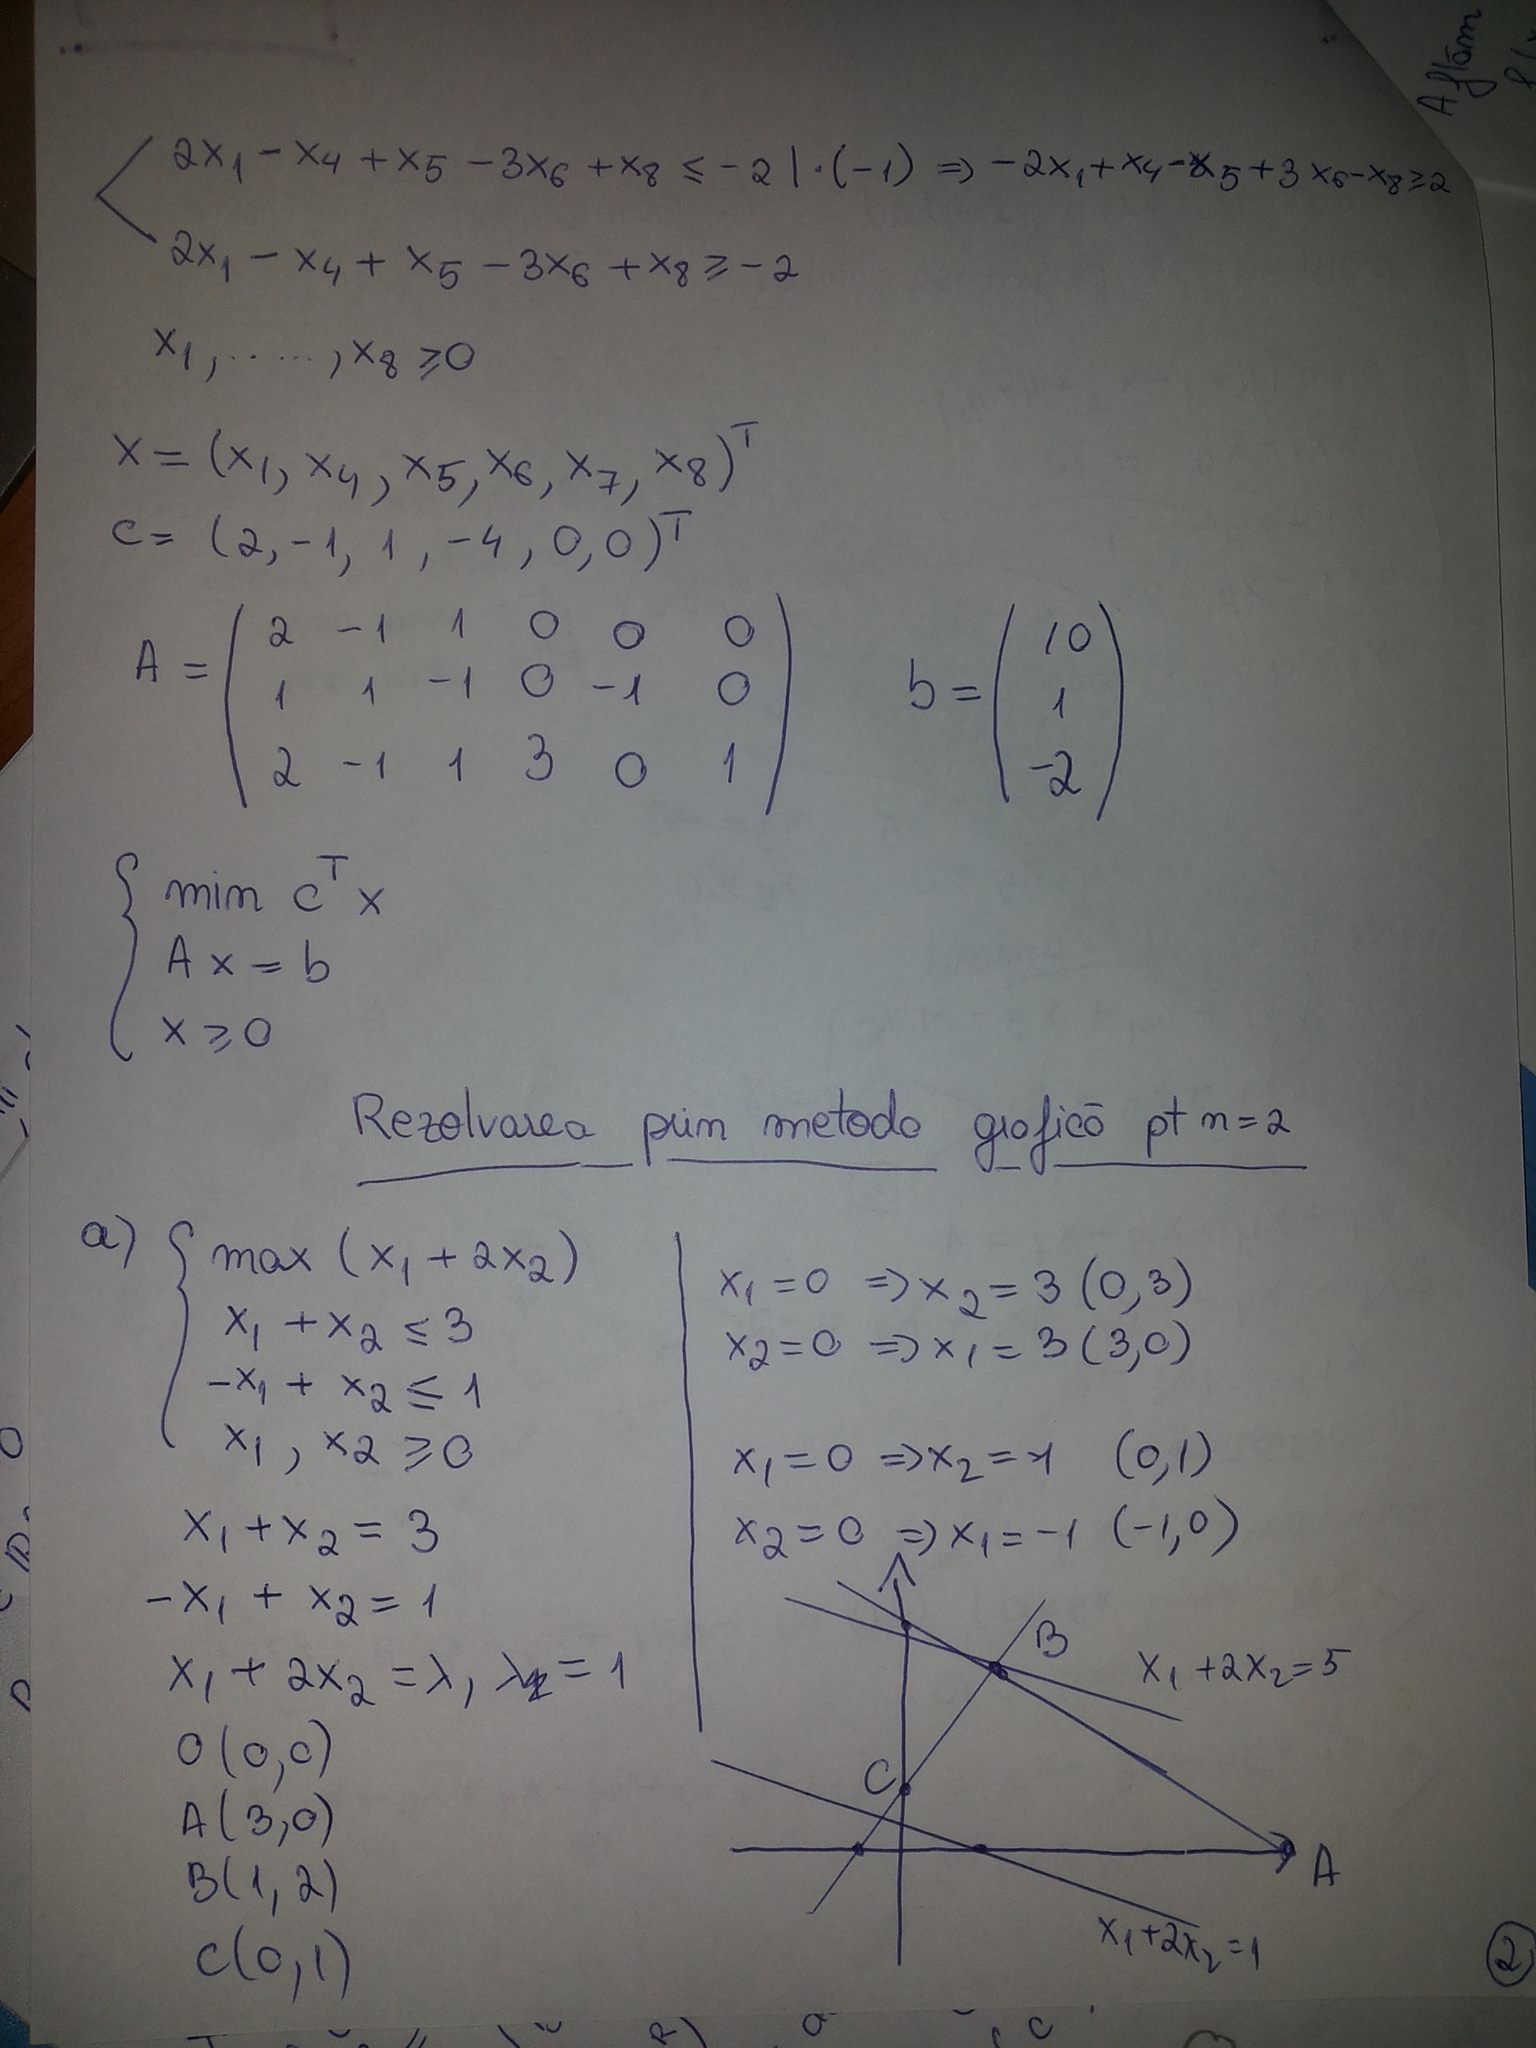 2x₁ - x₄ + x₅ - 3x₆ + x₈ ≤ -2 | ·(-1) => -2x₁ + x₄ - x₅ + 3x₆ - x₈ ≥ 2
2x₁ - x₄ + x₅ - 3x₆ + x₈ ≥ -2
x₁, ....., x₈ ≥ 0
x = (x₁, x₄, x₅, x₆, x₇, x₈)ᵀ
c = (2, -1, 1, -4, 0, 0)ᵀ
A = ( 2 -1 1 0 0 0
1 1 -1 0 -1 0
2 -1 1 3 0 1 )
b = ( 10
1
-2 )
min cᵀx
Ax = b
x ≥ 0
Rezolvarea prin metoda grafică pt n=2
a) max (x₁ + 2x₂)
x₁ + x₂ ≤ 3
-x₁ + x₂ ≤ 1
x₁, x₂ ≥ 0
x₁ + x₂ = 3
-x₁ + x₂ = 1
x₁ + 2x₂ = λ, λ = 1
O(0,0)
A(3,0)
B(1,2)
C(0,1)
x₁ = 0 => x₂ = 3 (0,3)
x₂ = 0 => x₁ = 3 (3,0)
x₁ = 0 => x₂ = 1 (0,1)
x₂ = 0 => x₁ = -1 (-1,0)
B
x₁ + 2x₂ = 5
C
A
x₁ + 2x₂ = 1
2
Aflăm